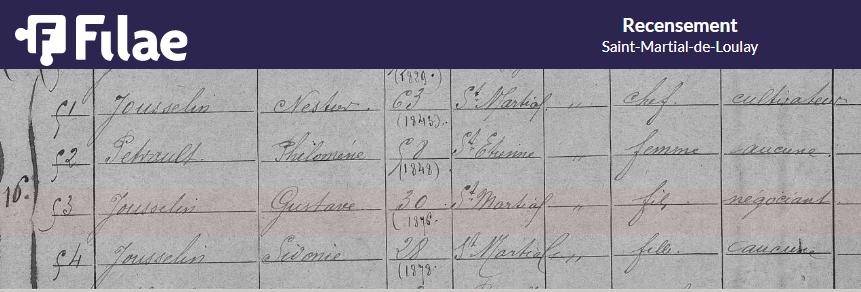 Filae
Recensement
Saint-Martial-de-Loulay
(1880.)
51 Jousselin Nestor. 63 St Martial " chef. cultivateur
(1843).
52 Petrault Philomène 58 St Etienne " femme aucune
(1848)
16. 53 Jousselin Gustave 30 St Martial " fils négociant
(1876.
54 Jousselin Sidonie 28 St Martial " fille. aucune
(1878.